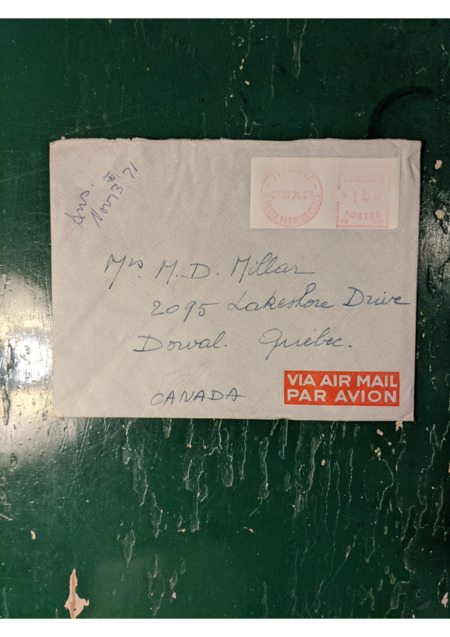 Ans.
Nov 3 71
150
POSTES
Mrs. M. D. Millar
2095 Lakeshore Drive
Dorval. Québec.
CANADA
VIA AIR MAIL
PAR AVION